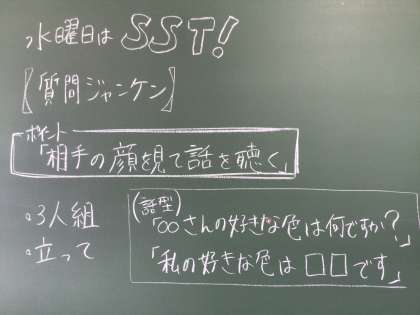 水曜日はSST!
【質問ジャンケン】
ポイント
「相手の顔を見て話を聴く」
・3人組
・立って
(話型)
「○○さんの好きな色は何ですか?」
「私の好きな色は□□です」